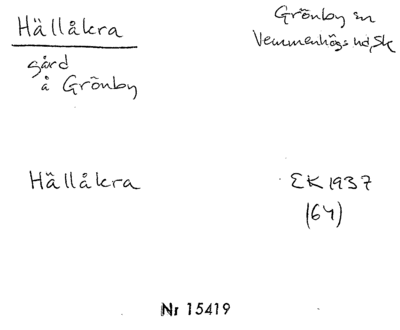 Hällåkra
Grönby sn
Vemmenhögs hd, Sk
gård
å Grönby
Hällåkra
EK 1937
(64)
Nr 15419